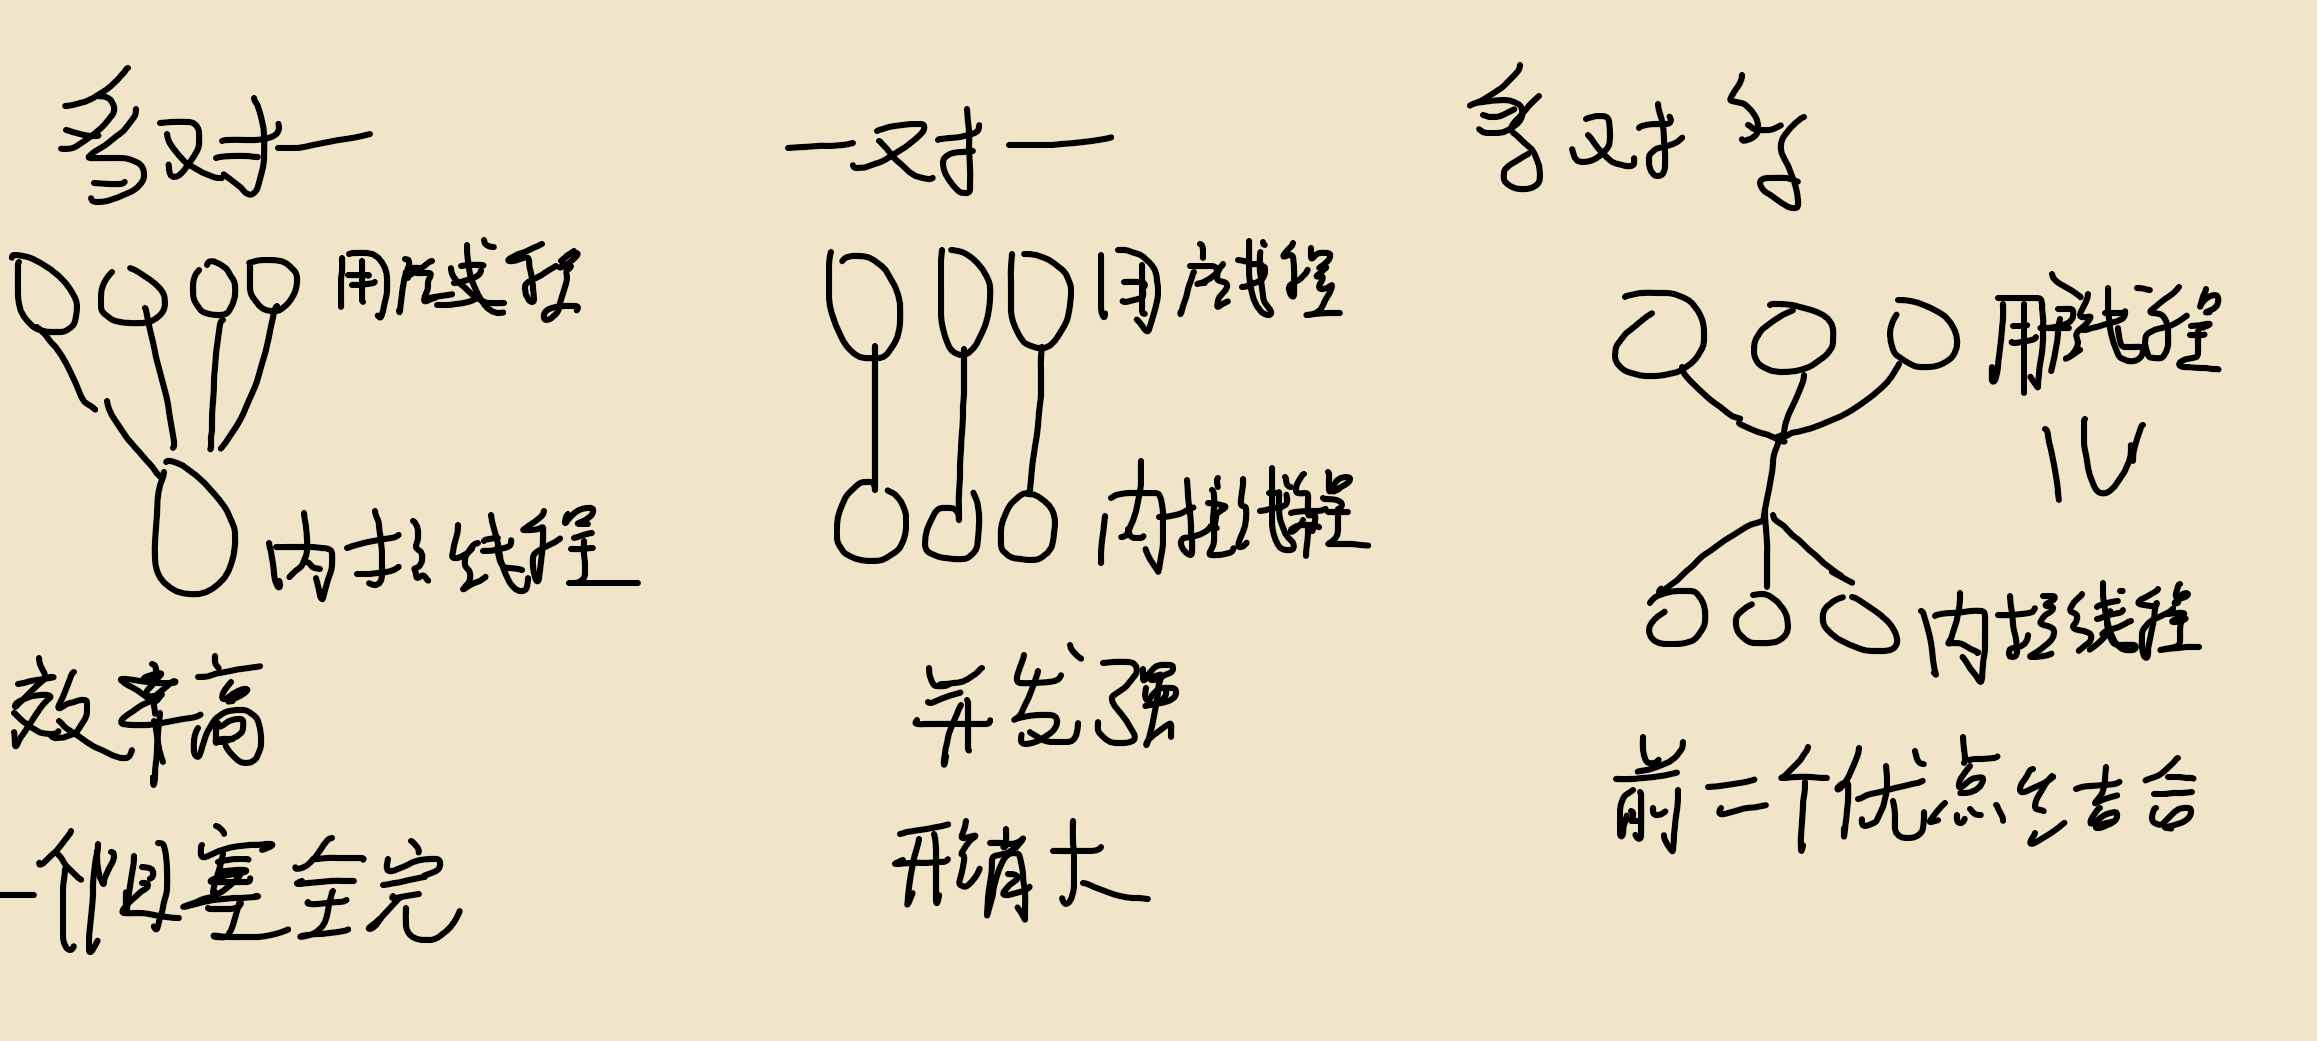 多对一
用户线程
内核线程
效率高
一个阻塞全完
一对一
用户线程
内核线程
并发强
开销大
多对多
用户线程
IV
内核线程
前二个优点结合